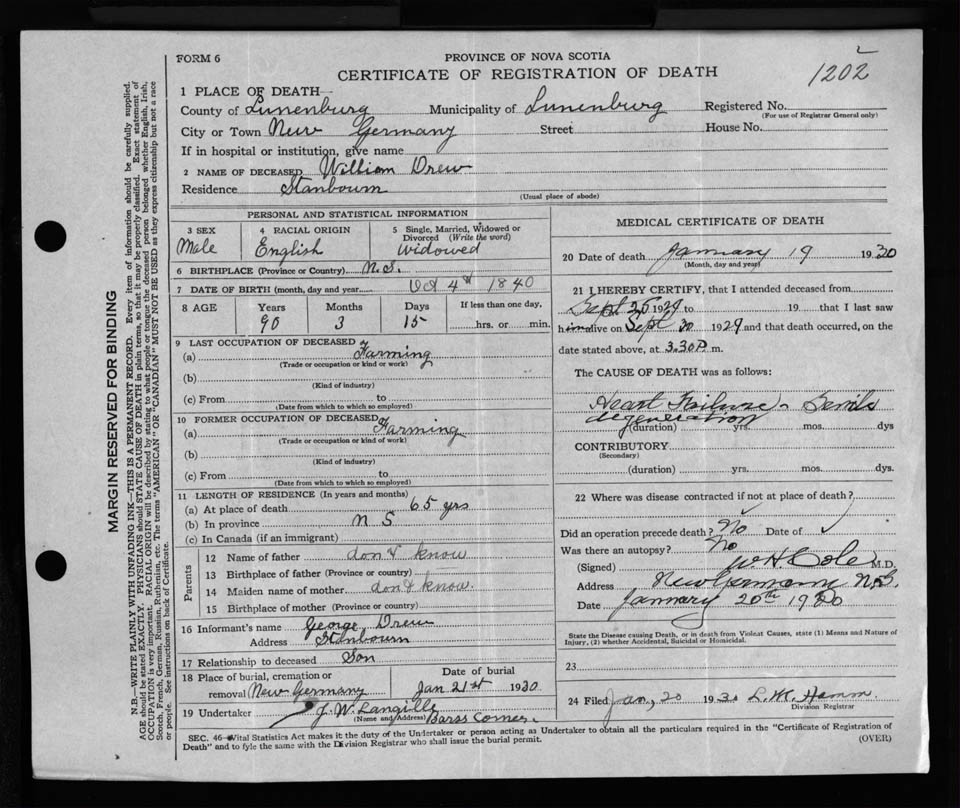 FORM 6
PROVINCE OF NOVA SCOTIA
CERTIFICATE OF REGISTRATION OF DEATH
1202
1 PLACE OF DEATH
County of Lunenburg Municipality of Lunenburg Registered No.
(For use of Registrar General only)
City or Town New Germany Street House No.
If in hospital or institution, give name
2 NAME OF DECEASED William Drew
Residence Stanbourn
(Usual place of abode)
PERSONAL AND STATISTICAL INFORMATION
3 SEX 4 RACIAL ORIGIN 5 Single, Married, Widowed or
Divorced (Write the word)
Male English Widowed
6 BIRTHPLACE (Province or Country) N.S.
7 DATE OF BIRTH (month, day and year) Oct 4th 1840
8 AGE Years Months Days If less than one day,
90 3 15 hrs. or min.
9 LAST OCCUPATION OF DECEASED
(a) Farming
(Trade or occupation or kind or work)
(b)
(Kind of industry)
(c) From to
(Date from which to which so employed)
10 FORMER OCCUPATION OF DECEASED
(a) Farming
(Trade or occupation or kind of work)
(b)
(Kind of industry)
(c) From to
(Date from which to which so employed)
11 LENGTH OF RESIDENCE (In years and months)
(a) At place of death 65 yrs
(b) In province N S
(c) In Canada (if an immigrant)
Parents
12 Name of father don't know
13 Birthplace of father (Province or country)
14 Maiden name of mother don't know
15 Birthplace of mother (Province or country)
16 Informant's name George Drew
Address Stanbourn
17 Relationship to deceased Son
18 Place of burial, cremation or Date of burial
removal New Germany Jan 21st 1930
19 Undertaker J. W. Langille
(Name and Address) Barss Corner
MEDICAL CERTIFICATE OF DEATH
20 Date of death January 19 1930
(Month, day and year)
21 I HEREBY CERTIFY, that I attended deceased from
Sept 26 1929 to 19 that I last saw
him alive on Sept 30 1929 and that death occurred, on the
date stated above, at 3.30 P. m.
The CAUSE OF DEATH was as follows:
Heart Failure - Senile
degeneration
(duration) yrs. mos. dys
CONTRIBUTORY
(Secondary)
(duration) yrs. mos. dys.
22 Where was disease contracted if not at place of death?
Did an operation precede death? No Date of
Was there an autopsy? No
(Signed) W H Cole M.D.
Address New Germany N.S.
Date January 20th 1930
State the Disease causing Death, or in death from Violent Causes, state (1) Means and Nature of
Injury, (2) whether Accidental, Suicidal or Homicidal.
23
24 Filed Jan, 20 1930 L. M. Hamm
Division Registrar
SEC. 46—Vital Statistics Act makes it the duty of the Undertaker or person acting as Undertaker to obtain all the particulars required in the "Certificate of Registration of
Death" and to fyle the same with the Division Registrar who shall issue the burial permit.
(OVER)
MARGIN RESERVED FOR BINDING
N.B.—WRITE PLAINLY WITH UNFADING INK—THIS IS A PERMANENT RECORD. Every item of information should be carefully supplied.
AGE should be stated EXACTLY. PHYSICIANS should STATE CAUSE OF DEATH in plain terms, so that it may be properly classified. Exact statement of
OCCUPATION is very important. RACIAL ORIGIN will be described by stating to what people or tongue the deceased person belonged whether English, Irish,
Scotch, French, German, Russian, Ruthenian, etc. The terms "AMERICAN" OR "CANADIAN" MUST NOT BE USED as they express citizenship but not a race
or people. See instructions on back of Certificate.